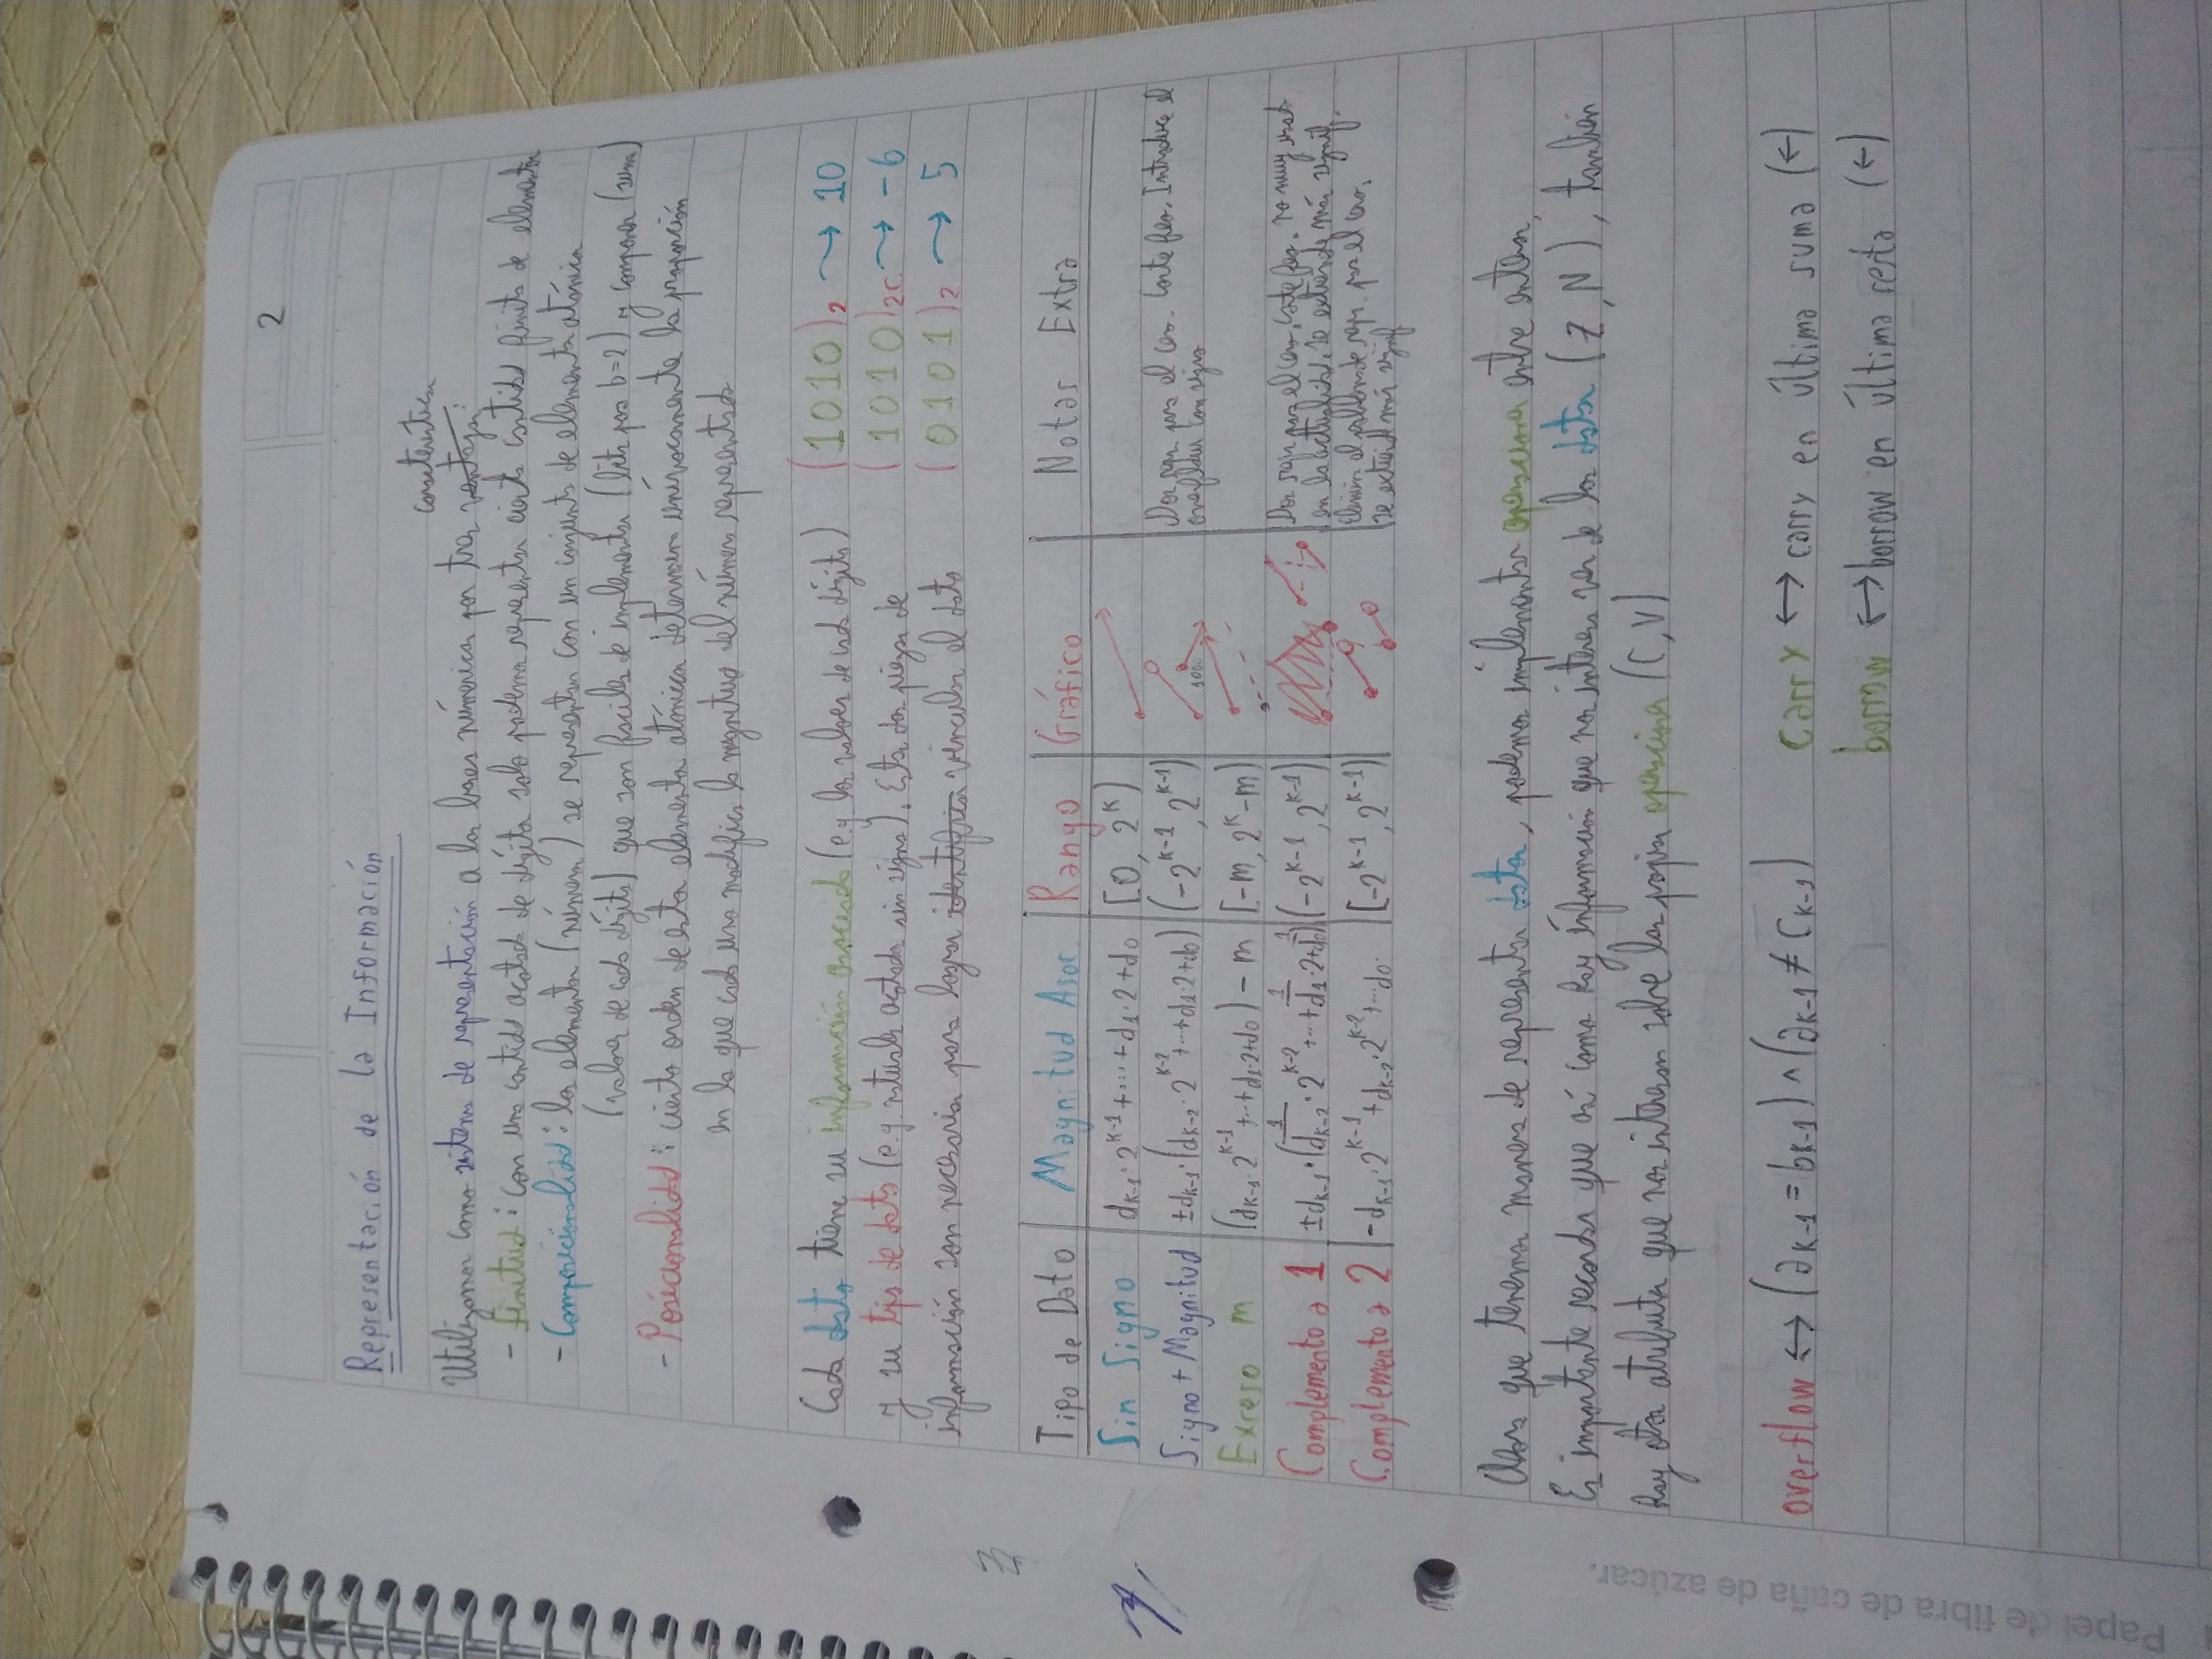 2
Representación de la Información
características
Utilizamos como sistema de representación a las bases númericas por tres ventajas:
- Finitud: con una cantidad acotada de dígitos solo podemos representar cierta cantidad finita de elementos
- Composicionalidad: los elementos (números) se representan con un conjunto de elementos atómicos
(valores de cada dígito) que son fáciles de implementar (bits para b=2) y componer (suma)
- Posicionalidad: cierto orden de estos elementos atómicos determina unívocamente la proporción
en la que cada uno modifica la magnitud del número representado
Cada dato tiene su información asociada (e.g los valores de cada dígito) (1010)₂ ⇝ 10
y su tipo de dato (e.g. naturales acotados sin signo). Estas dos piezas de (1010)₂c ⇝ -6
información son necesarias para lograr identificar vincular el dato (0101)₂ ⇝ 5
Tipo de Dato | Magnitud Asoc. | Rango | Gráfico | Notas Extra
Sin Signo | dₖ₋₁·2^(k-1)+...+d₁·2+d₀ | [0, 2^k)
Signo+Magnitud | ±dₖ₋₁·(dₖ₋₂·2^(k-2)+...+d₁·2+d₀) | (-2^(k-1), 2^(k-1)) | 100. | Dos repr. para el cero. Corte feo. Introduce el
overflow con signo
Exceso m | (dₖ₋₁·2^(k-1)+...+d₁·2+d₀) - m | [-m, 2^k-m)
Complemento a 1 | (-2^(k-1), 2^(k-1)) | Dos repr. para el cero, corte feo. no muy usado
en la actualidad. Se extiende más signif.
Complemento a 2 | -dₖ₋₁·2^(k-1)+dₖ₋₂·2^(k-2)+...d₀. | [-2^(k-1), 2^(k-1)) | Elimina el problema de repr. para el cero.
Se extiende más signif
Ahora que tenemos manera de representar datos, podemos implementar operaciones entre enteros.
Es importante recordar que así como hay información que nos interesa ver de los datos (Z, N), también
hay otros atributos que nos interesan sobre las propias operaciones (C, V)
overflow ↔ (aₖ₋₁ = bₖ₋₁) ^ (aₖ₋₁ ≠ cₖ₋₁) carry ↔ carry en última suma (←)
borrow ↔ borrow en última resta (←)
Papel de fibra de caña de azúcar.